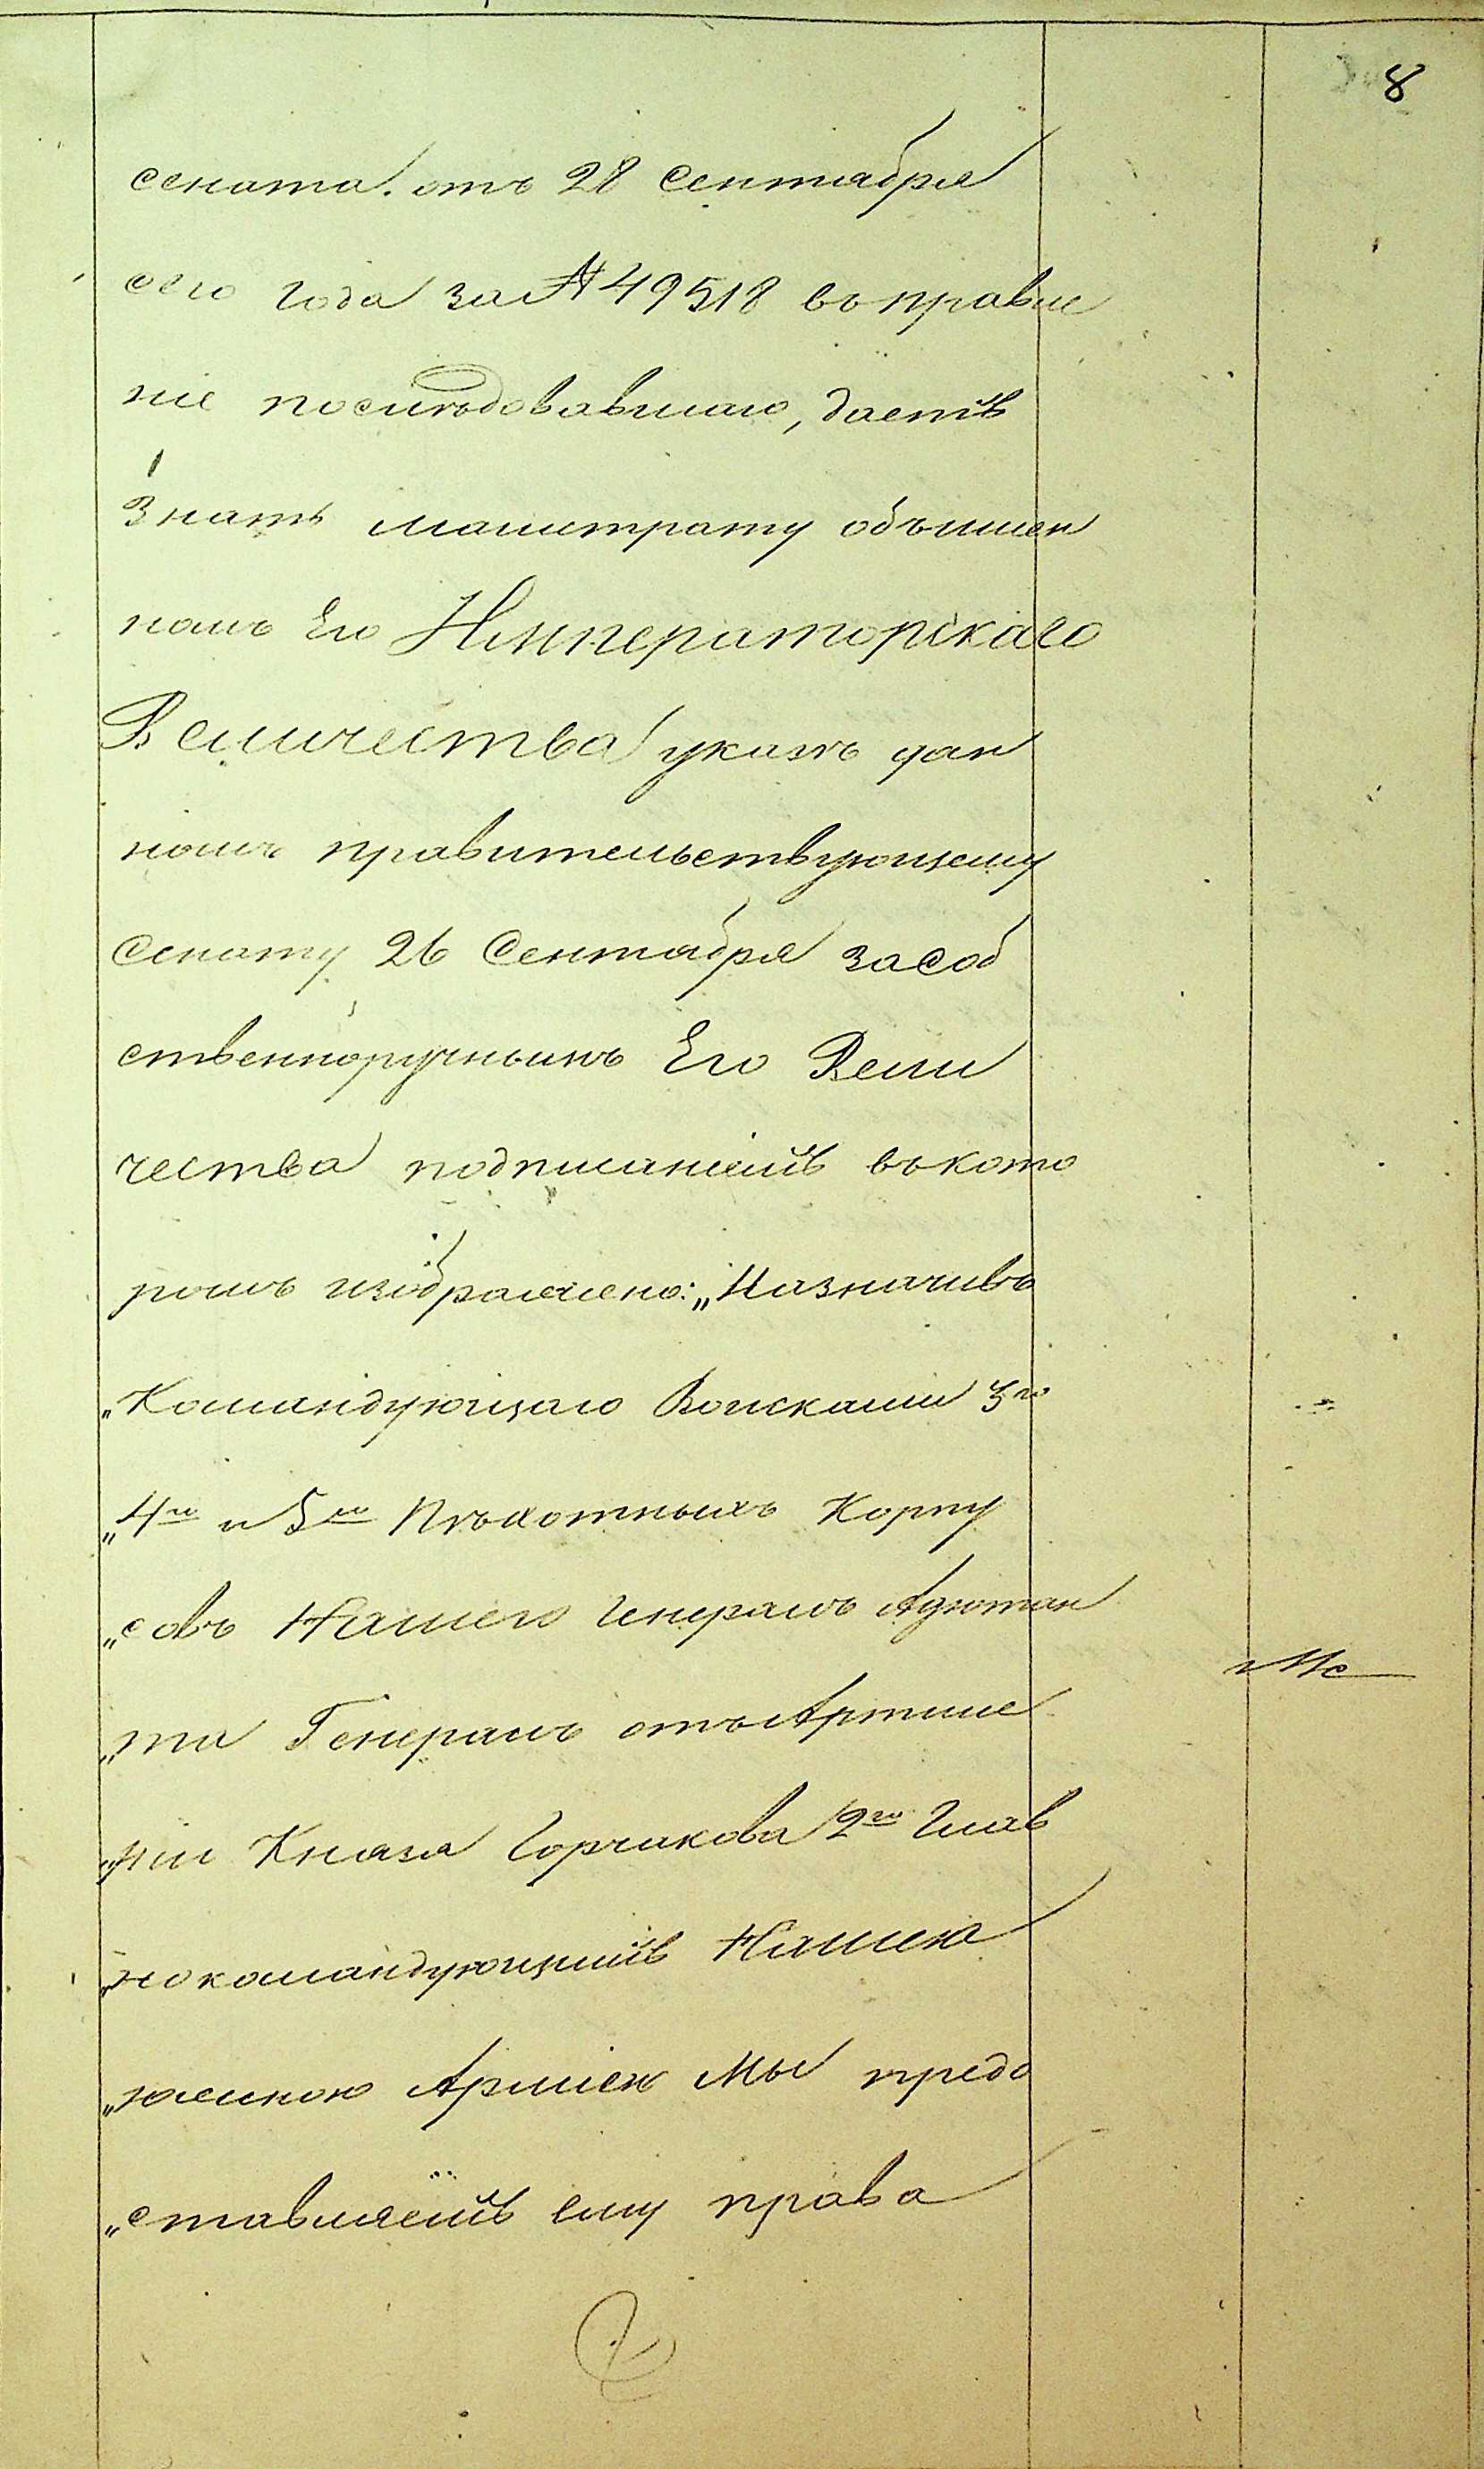 8
сената. отъ 28 сентября
сего года за № 49518 въ правле
ніе послѣдовавшаго, даетъ
знать магистрату объ имен
номъ Его Императорскаго
Величества указѣ дан
номъ правительствующему
сенату 26 Сентября за соб
ственноручнымъ Его Вели
чества подписаніемъ въ кото
ромъ изображено: „Назначивъ
„Командующаго Войсками 3го
„4го и 5го Пѣхотныхъ Корпу
„совъ Нашего Генералъ Адютан
„та Генералъ отъ Артиле
„ріи Князя Горчакова 2го Глав
„нокомандующимъ Нашею
„южною Арміею Мы предо
„ставляемъ ему права